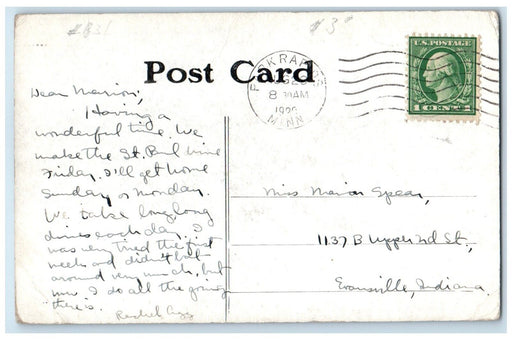 Post Card
PARK RAPIDS
8 30 AM
MINN.
U.S. POSTAGE
1 CENT 1
Dear Marion,
Having a
wonderful time. We
make the St. Paul
Friday. I'll get home
Sunday or Monday.
We take long long
each day. I
was very tired the first
week and didn't
around very much, but
now I do all the going
there is.
Rachel
Miss Marion Spear,
1137 B Upper 2d St.,
Evansville, Indiana.